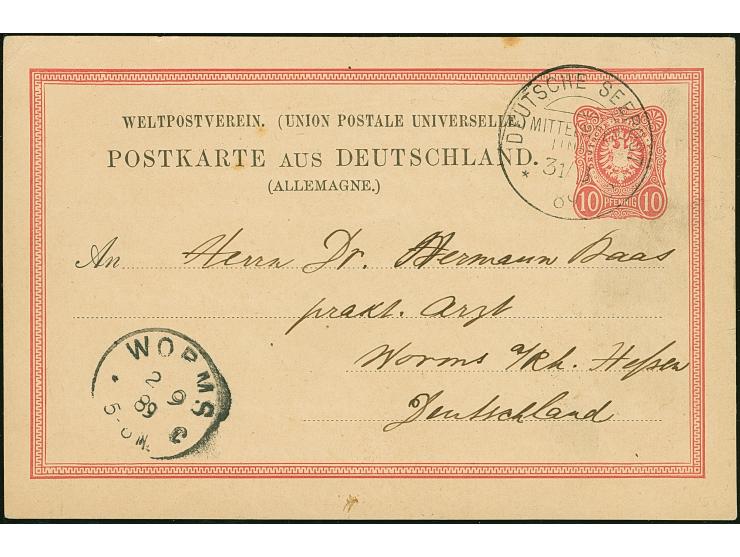 WELTPOSTVEREIN. (UNION POSTALE UNIVERSELLE.
POSTKARTE AUS DEUTSCHLAND.
(ALLEMAGNE.)
DEUTSCHE SEEPOST
MITTEL
LINIE
31/
89
10 PFENNIG 10
An Herrn Dr. Hermann Haas
prakt. Arzt
Worms a/Rh. Hessen
Deutschland
WORMS
2 9
89
5-6 N.
C